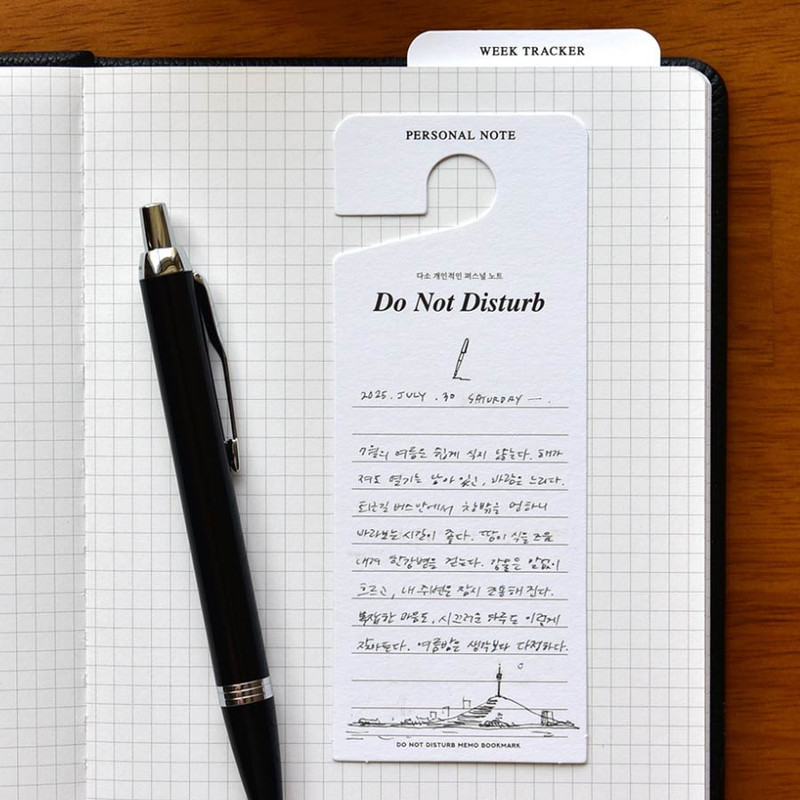 WEEK TRACKER
PERSONAL NOTE
다소 개인적인 퍼스널 노트
Do Not Disturb
2025. JULY . 30 SATURDAY —.
7월의 여름은 쉽게 식지 않는다. 해가
져도 열기는 남아 있고, 바람은 느리다.
퇴근길 버스 안에서 창밖을 멍하니
바라보는 시간이 좋다. 땅이 식을 즈음
내려 한강변을 걷는다. 강물은 말없이
흐르고, 내 주변은 잠시 조용해진다.
복잡한 마음도, 시끄러운 하루도 이렇게
잦아든다. 여름밤은 생각보다 다정하다.
DO NOT DISTURB MEMO BOOKMARK